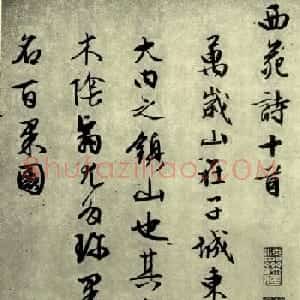 西苑詩十首
萬歲山在子城東
大内之鎮山也其
木陰翳尤多珍果
名百果園
shufaziliao.com